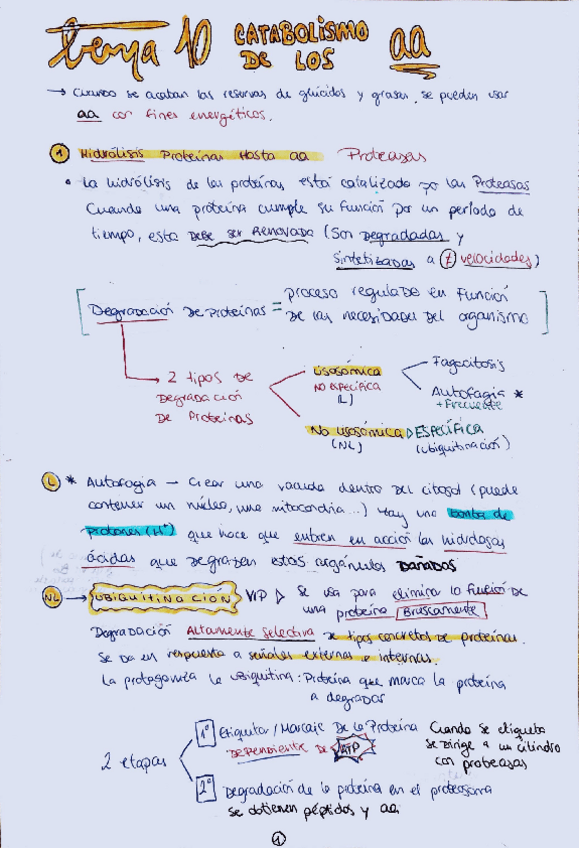 Tema 10 CATABOLISMO DE LOS aa
→ Cuando se acaban las reservas de glúcidos y grasas, se pueden usar
aa con fines energéticos.
1 Hidrólisis Proteínas Hasta aa Proteasas
• La hidrólisis de las proteínas está catalizada por las Proteasas
Cuando una proteína cumple su función por un período de
tiempo, esta DEBE SER RENOVADA (Son DEGRADADAS y
SINTETIZADAS a ≠ velocidades)
Degradación DE PROTEÍNAS = proceso regulado en función
DE las necesidades del organismo
→ 2 tipos DE
DEGRADACIÓN
DE Proteínas
Lisosómica
NO ESPECÍFICA
(L)
Fagocitosis
Autofagia *
+ Frecuente
No lisosómica ▷ ESPECÍFICA
(NL) (ubiquitinación)
L * Autofagia → Crear una vacuola dentro del citosol (puede
contener un núcleo, una mitocondria...) Hay una bomba de
protones (H+) que hace que entren en acción las hidrolasas
ácidas que degradan estos orgánulos DAÑADOS
NL → UBIQUITINACIÓN VIP ▷ Se usa para eliminar la función de
una proteína BRUSCAMENTE
Degradación Altamente selectiva de tipos concretos de proteínas.
Se da en respuesta a señales externas e internas.
La protagoniza la ubiquitina: Proteína que marca la proteína
a degradar
2 etapas
1º Etiquetar / Marcaje De la Proteína
DEPENDIENTE DE ATP
Cuando se etiqueta
se dirige a un cilindro
con proteasas
2º Degradación de la proteína en el proteasoma
Se obtienen péptidos y aa
1